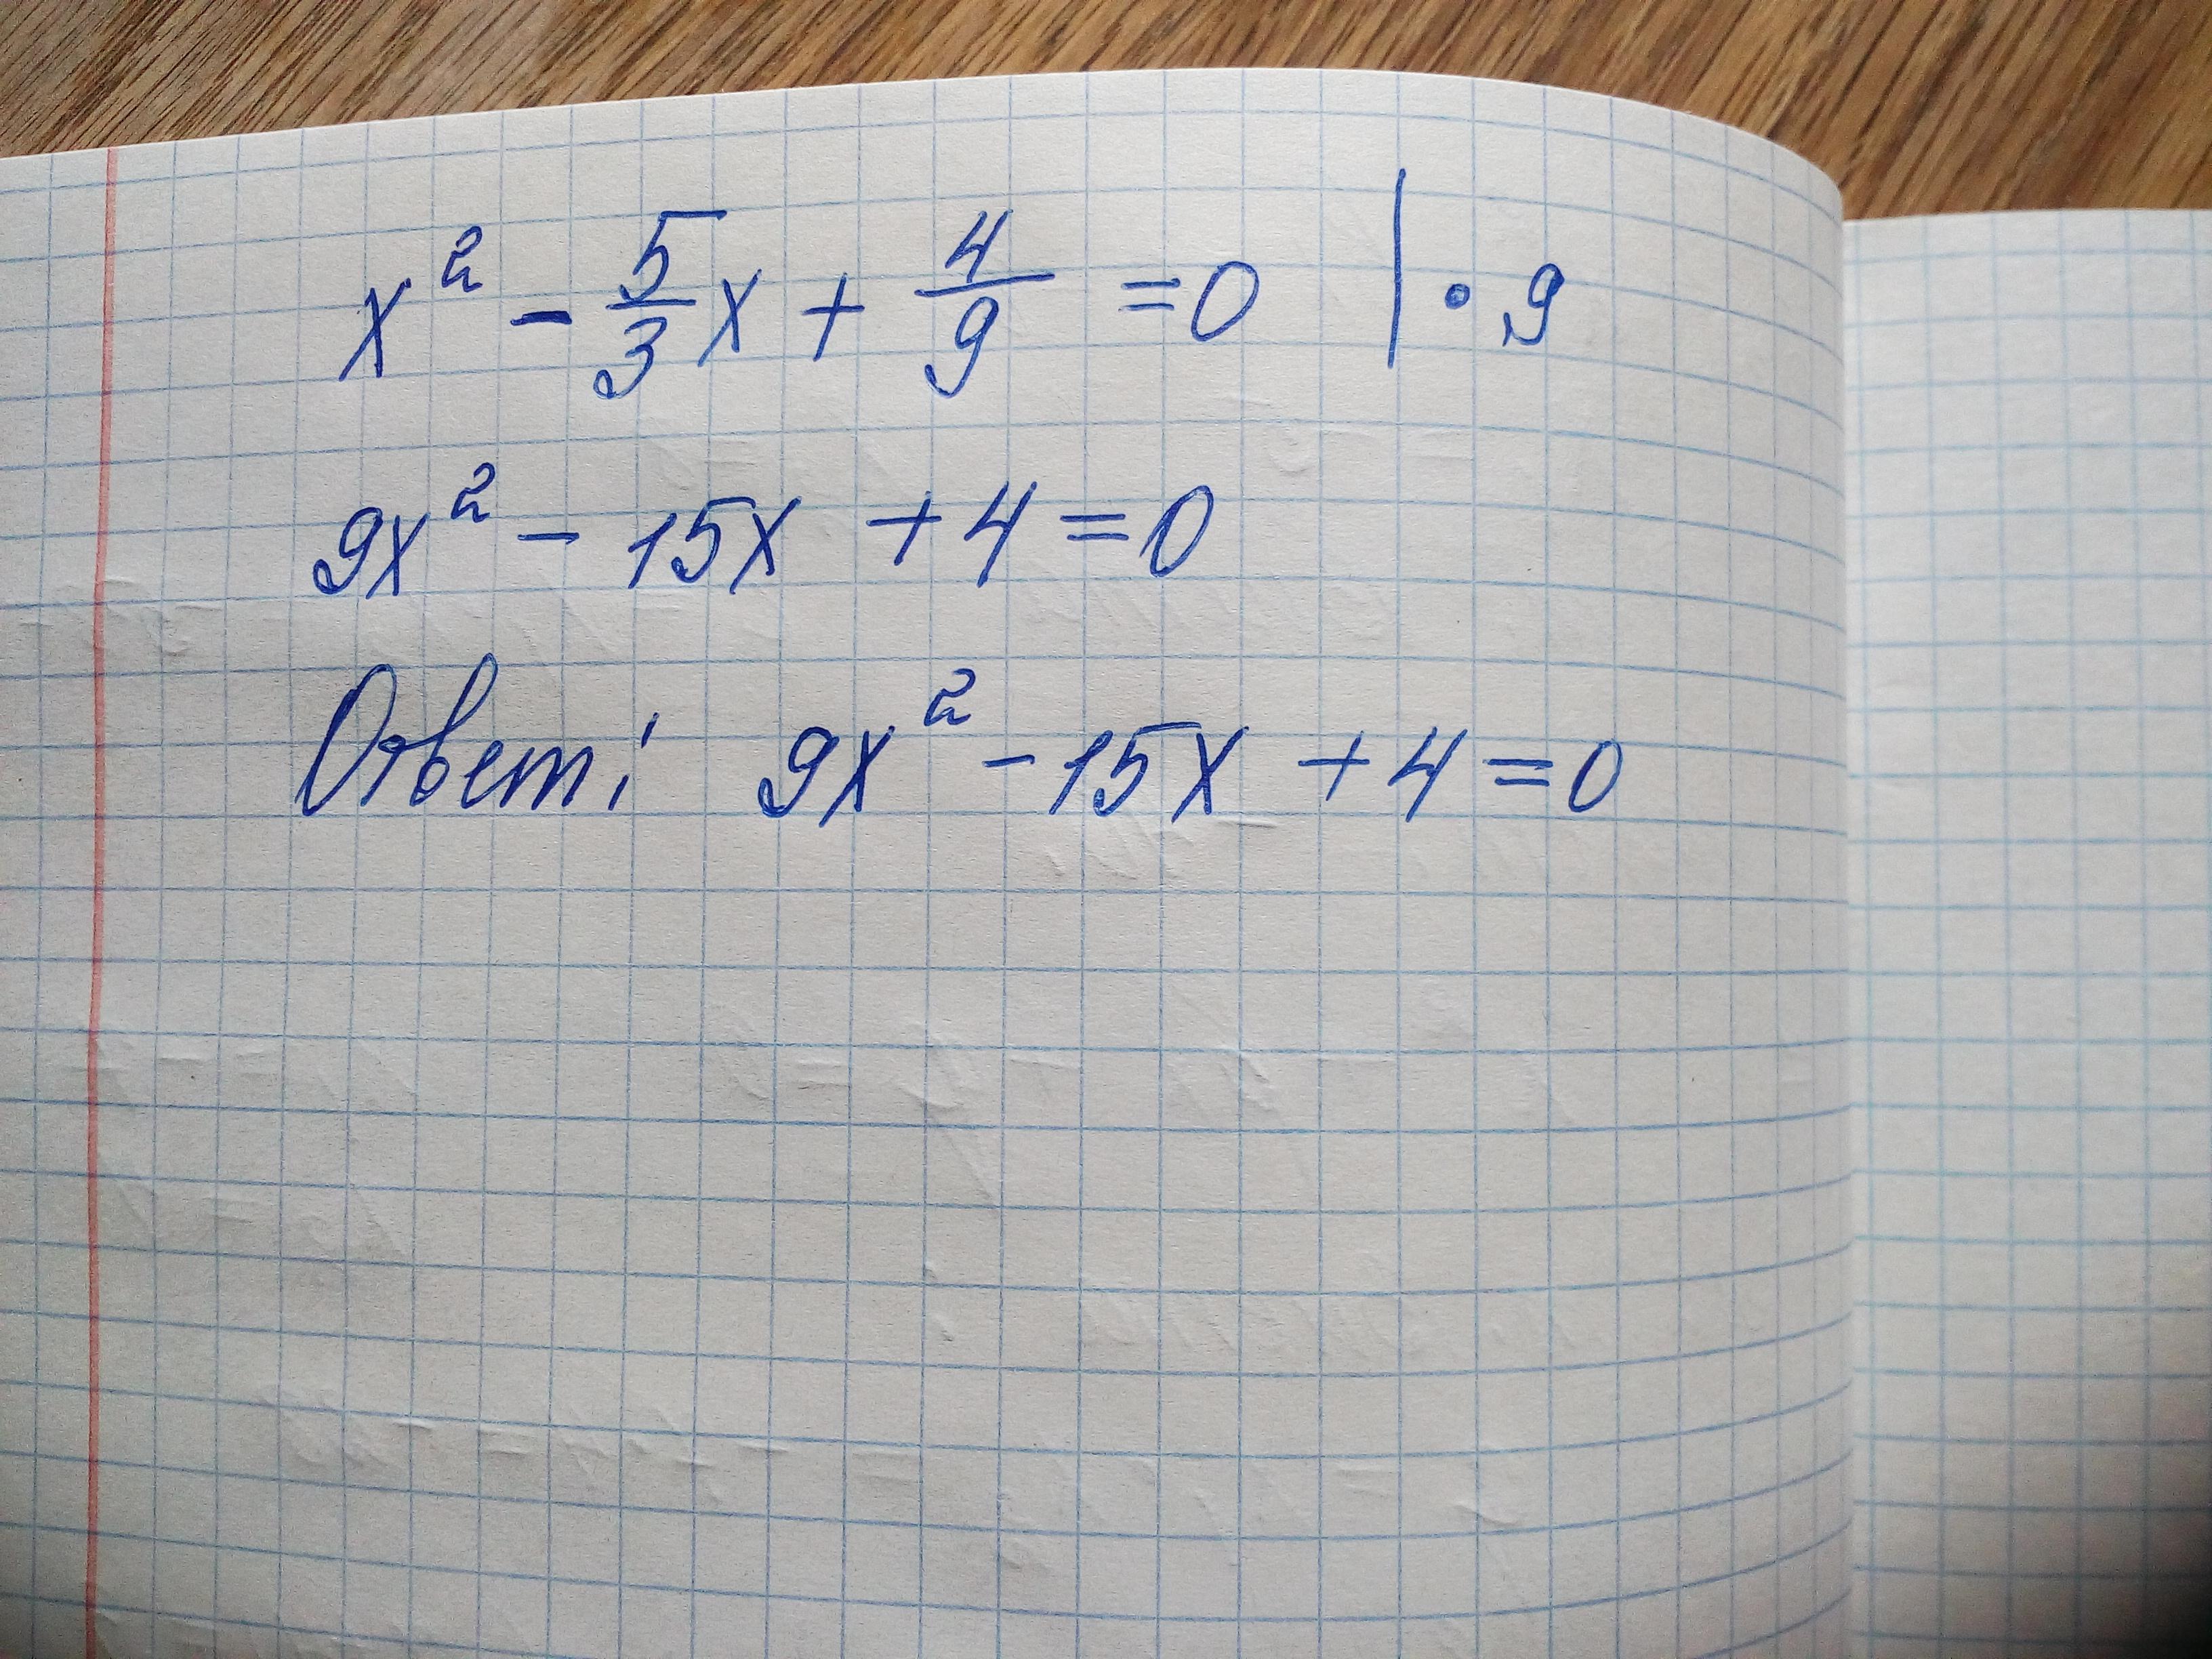 x² - 5/3 x + 4/9 = 0 | · 9
9x² - 15x + 4 = 0
Ответ: 9x² - 15x + 4 = 0